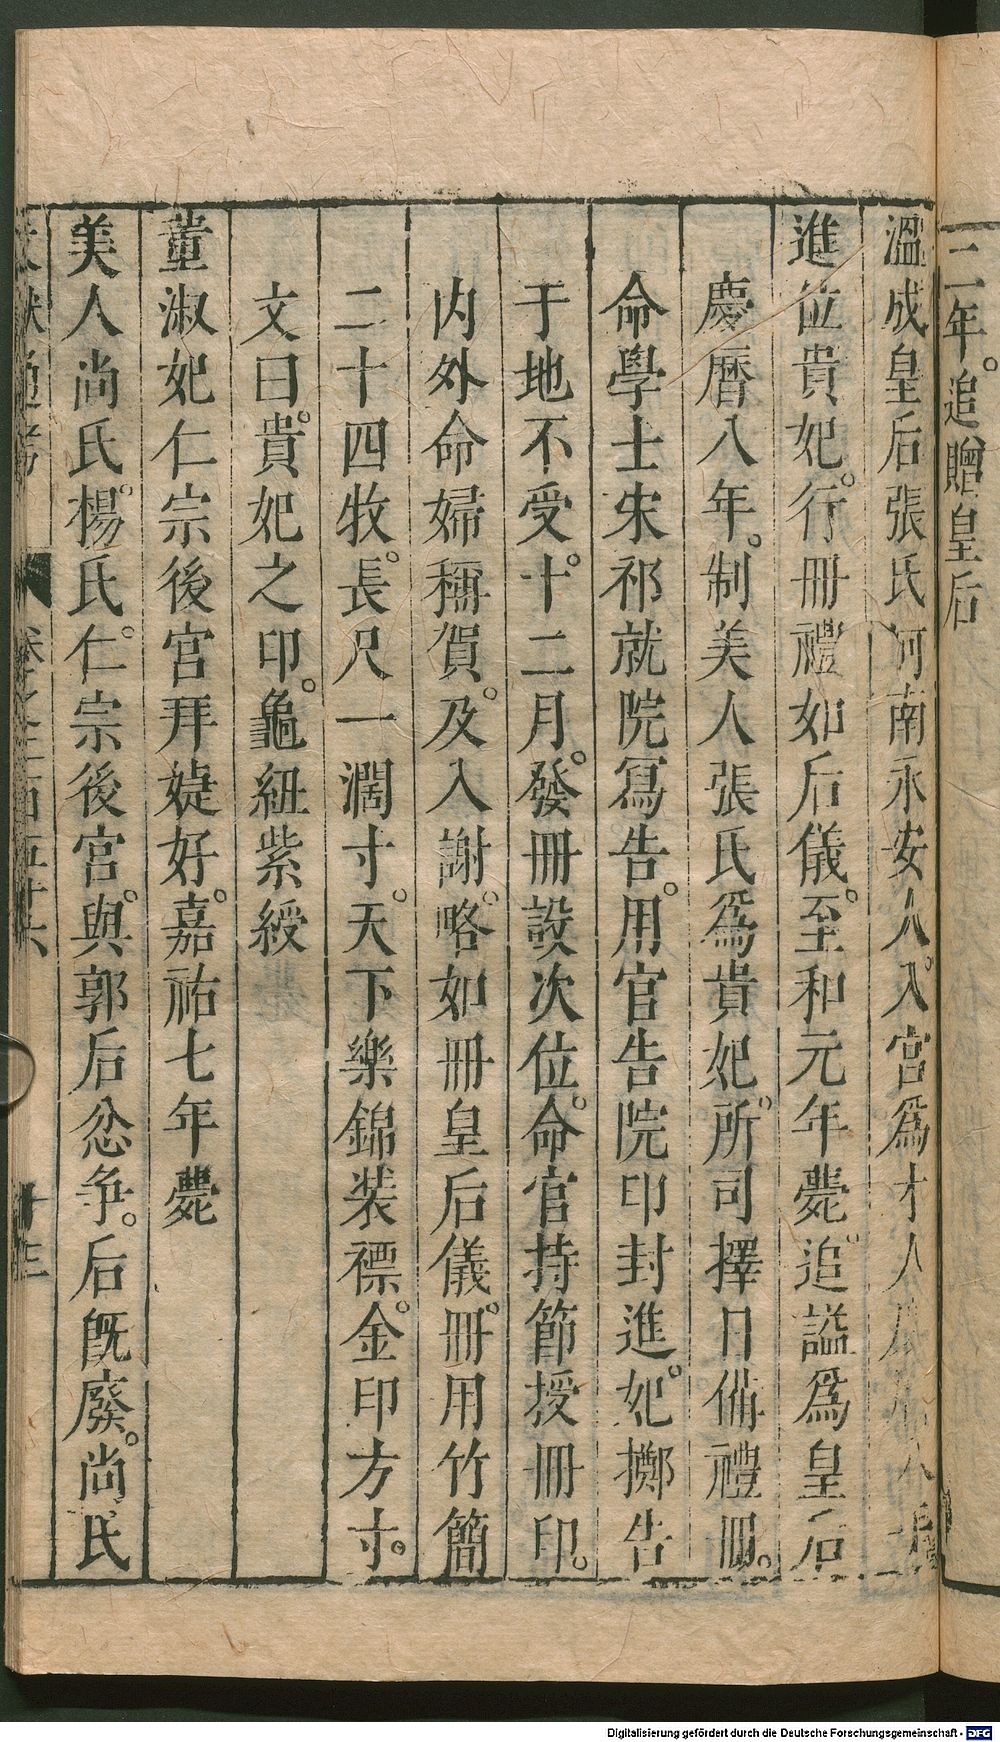 二年。追贈皇后
溫成皇后張氏河南永安人。入宮爲才人
進位貴妃。行冊禮如后儀。至和元年薨。追謚爲皇后
慶曆八年。制美人張氏爲貴妃。所司擇日備禮冊。
命學士宋祁就院寫告。用官告院印封進。妃擲告
于地不受。十二月。發冊設次位。命官持節授冊印。
內外命婦稱賀。及入謝。略如冊皇后儀。冊用竹簡
二十四牧。長尺一濶寸。天下樂錦装褾。金印方寸。
文曰。貴妃之印。龜紐紫綬
董淑妃仁宗後宮拜婕好。嘉祐七年薨
美人尚氏楊氏。仁宗後宮。與郭后忿争。后既廢。尚氏
通考 卷之二百五十六 十三
Digitalisierung gefördert durch die Deutsche Forschungsgemeinschaft - DFG